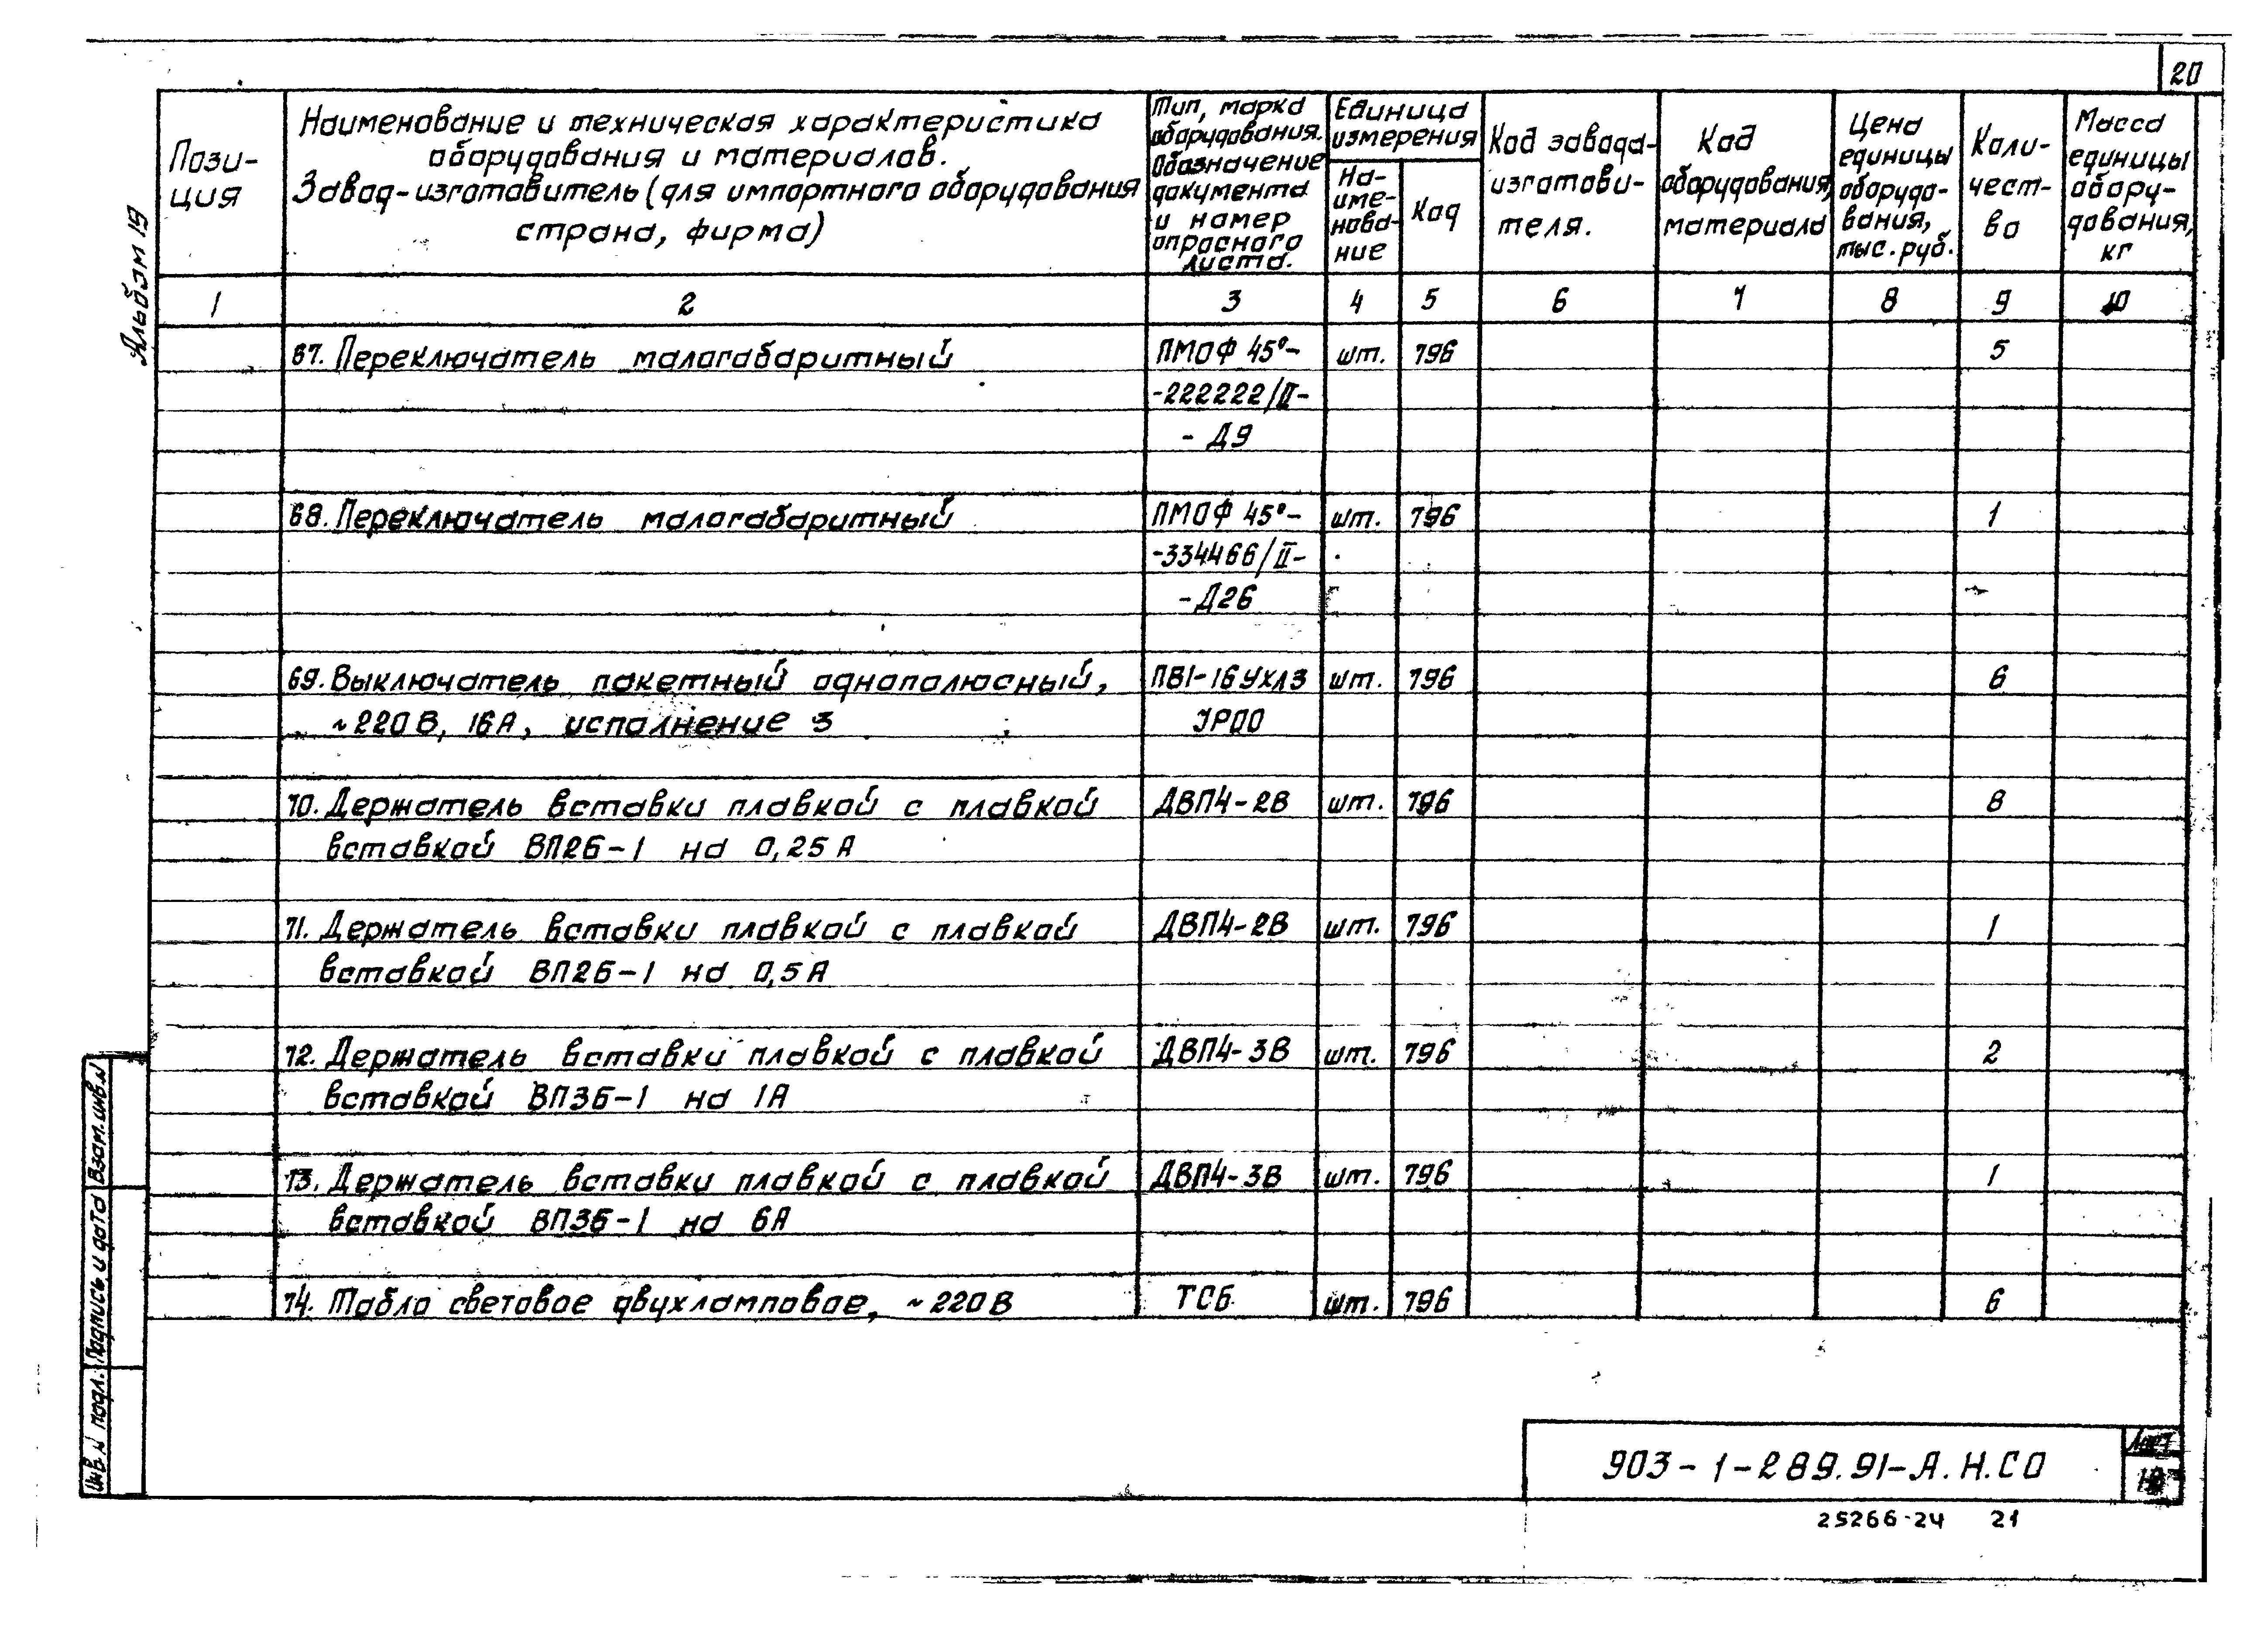 20
Альбом 19
Пози-
ция
Наименование и техническая характеристика
оборудования и материалов.
Завод-изготовитель (для импортного оборудования
страна, фирма)
Тип, марка
оборудования.
Обозначение
документа
и номер
опросного
листа.
Единица
измерения
На-
име-
нова-
ние
Код
Код завода-
изготови-
теля.
Код
оборудования,
материала
Цена
единицы
оборудо-
вания,
тыс. руб.
Коли-
чест-
во
Масса
единицы
обору-
дования,
кг
1 2 3 4 5 6 7 8 9 10
67. Переключатель малогабаритный ПМОФ 45°- шт. 796 5
-222222/II-
- Д9
68. Переключатель малогабаритный ПМОФ 45°- шт. 796 1
-334466/II-
- Д26
69. Выключатель пакетный однополюсный, ПВ1-16 УХЛ3 шт. 796 6
~220 В, 16 А, исполнение 3 JP00
70. Держатель вставки плавкой с плавкой ДВП4-2В шт. 796 8
вставкой ВП2Б-1 на 0,25 А
71. Держатель вставки плавкой с плавкой ДВП4-2В шт. 796 1
вставкой ВП2Б-1 на 0,5 А
72. Держатель вставки плавкой с плавкой ДВП4-3В шт. 796 2
вставкой ВП3Б-1 на 1А
73. Держатель вставки плавкой с плавкой ДВП4-3В шт. 796 1
вставкой ВП3Б-1 на 6А
74. Табло световое двухламповое, ~220 В ТСБ шт. 796 6
Взам. инв. N
Подпись и дата
Инв. N подл.
903-1-289.91-А.Н.СО
Лист
25266-24 21